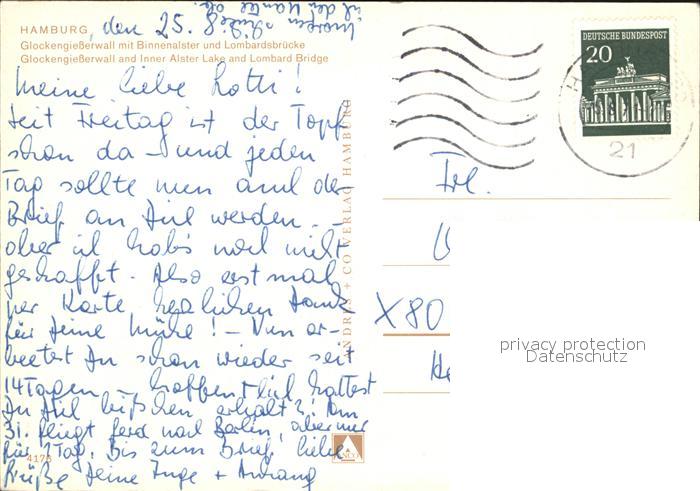 HAMBURG, den 25. 8.
Glockengießerwall mit Binnenalster und Lombardsbrücke
Glockengießerwall and Inner Alster Lake and Lombard Bridge
Meine liebe Lotti!
Seit Freitag ist der Topf
schon da – und jeden
Tag sollte nun auch der
Brief an Dich werden –
aber ich hab's noch nicht
geschafft. Also erst mal
per Karte herzlichen Dank
für Deine Mühe! – Nun ar-
beitest Du schon wieder seit
14 Tagen – hoffentlich hattest
Du Dich bißchen erholt?! Am
31. fliegt Gerd nach Berlin, aber nur
für 1 Tag. Bis zum Brief liebe
Grüße Deine Inge + Anhang
4175
ANDRES + CO VERLAG HAMBURG
ANCO
DEUTSCHE BUNDESPOST
20
21
Frl.
X80
privacy protection
Datenschutz